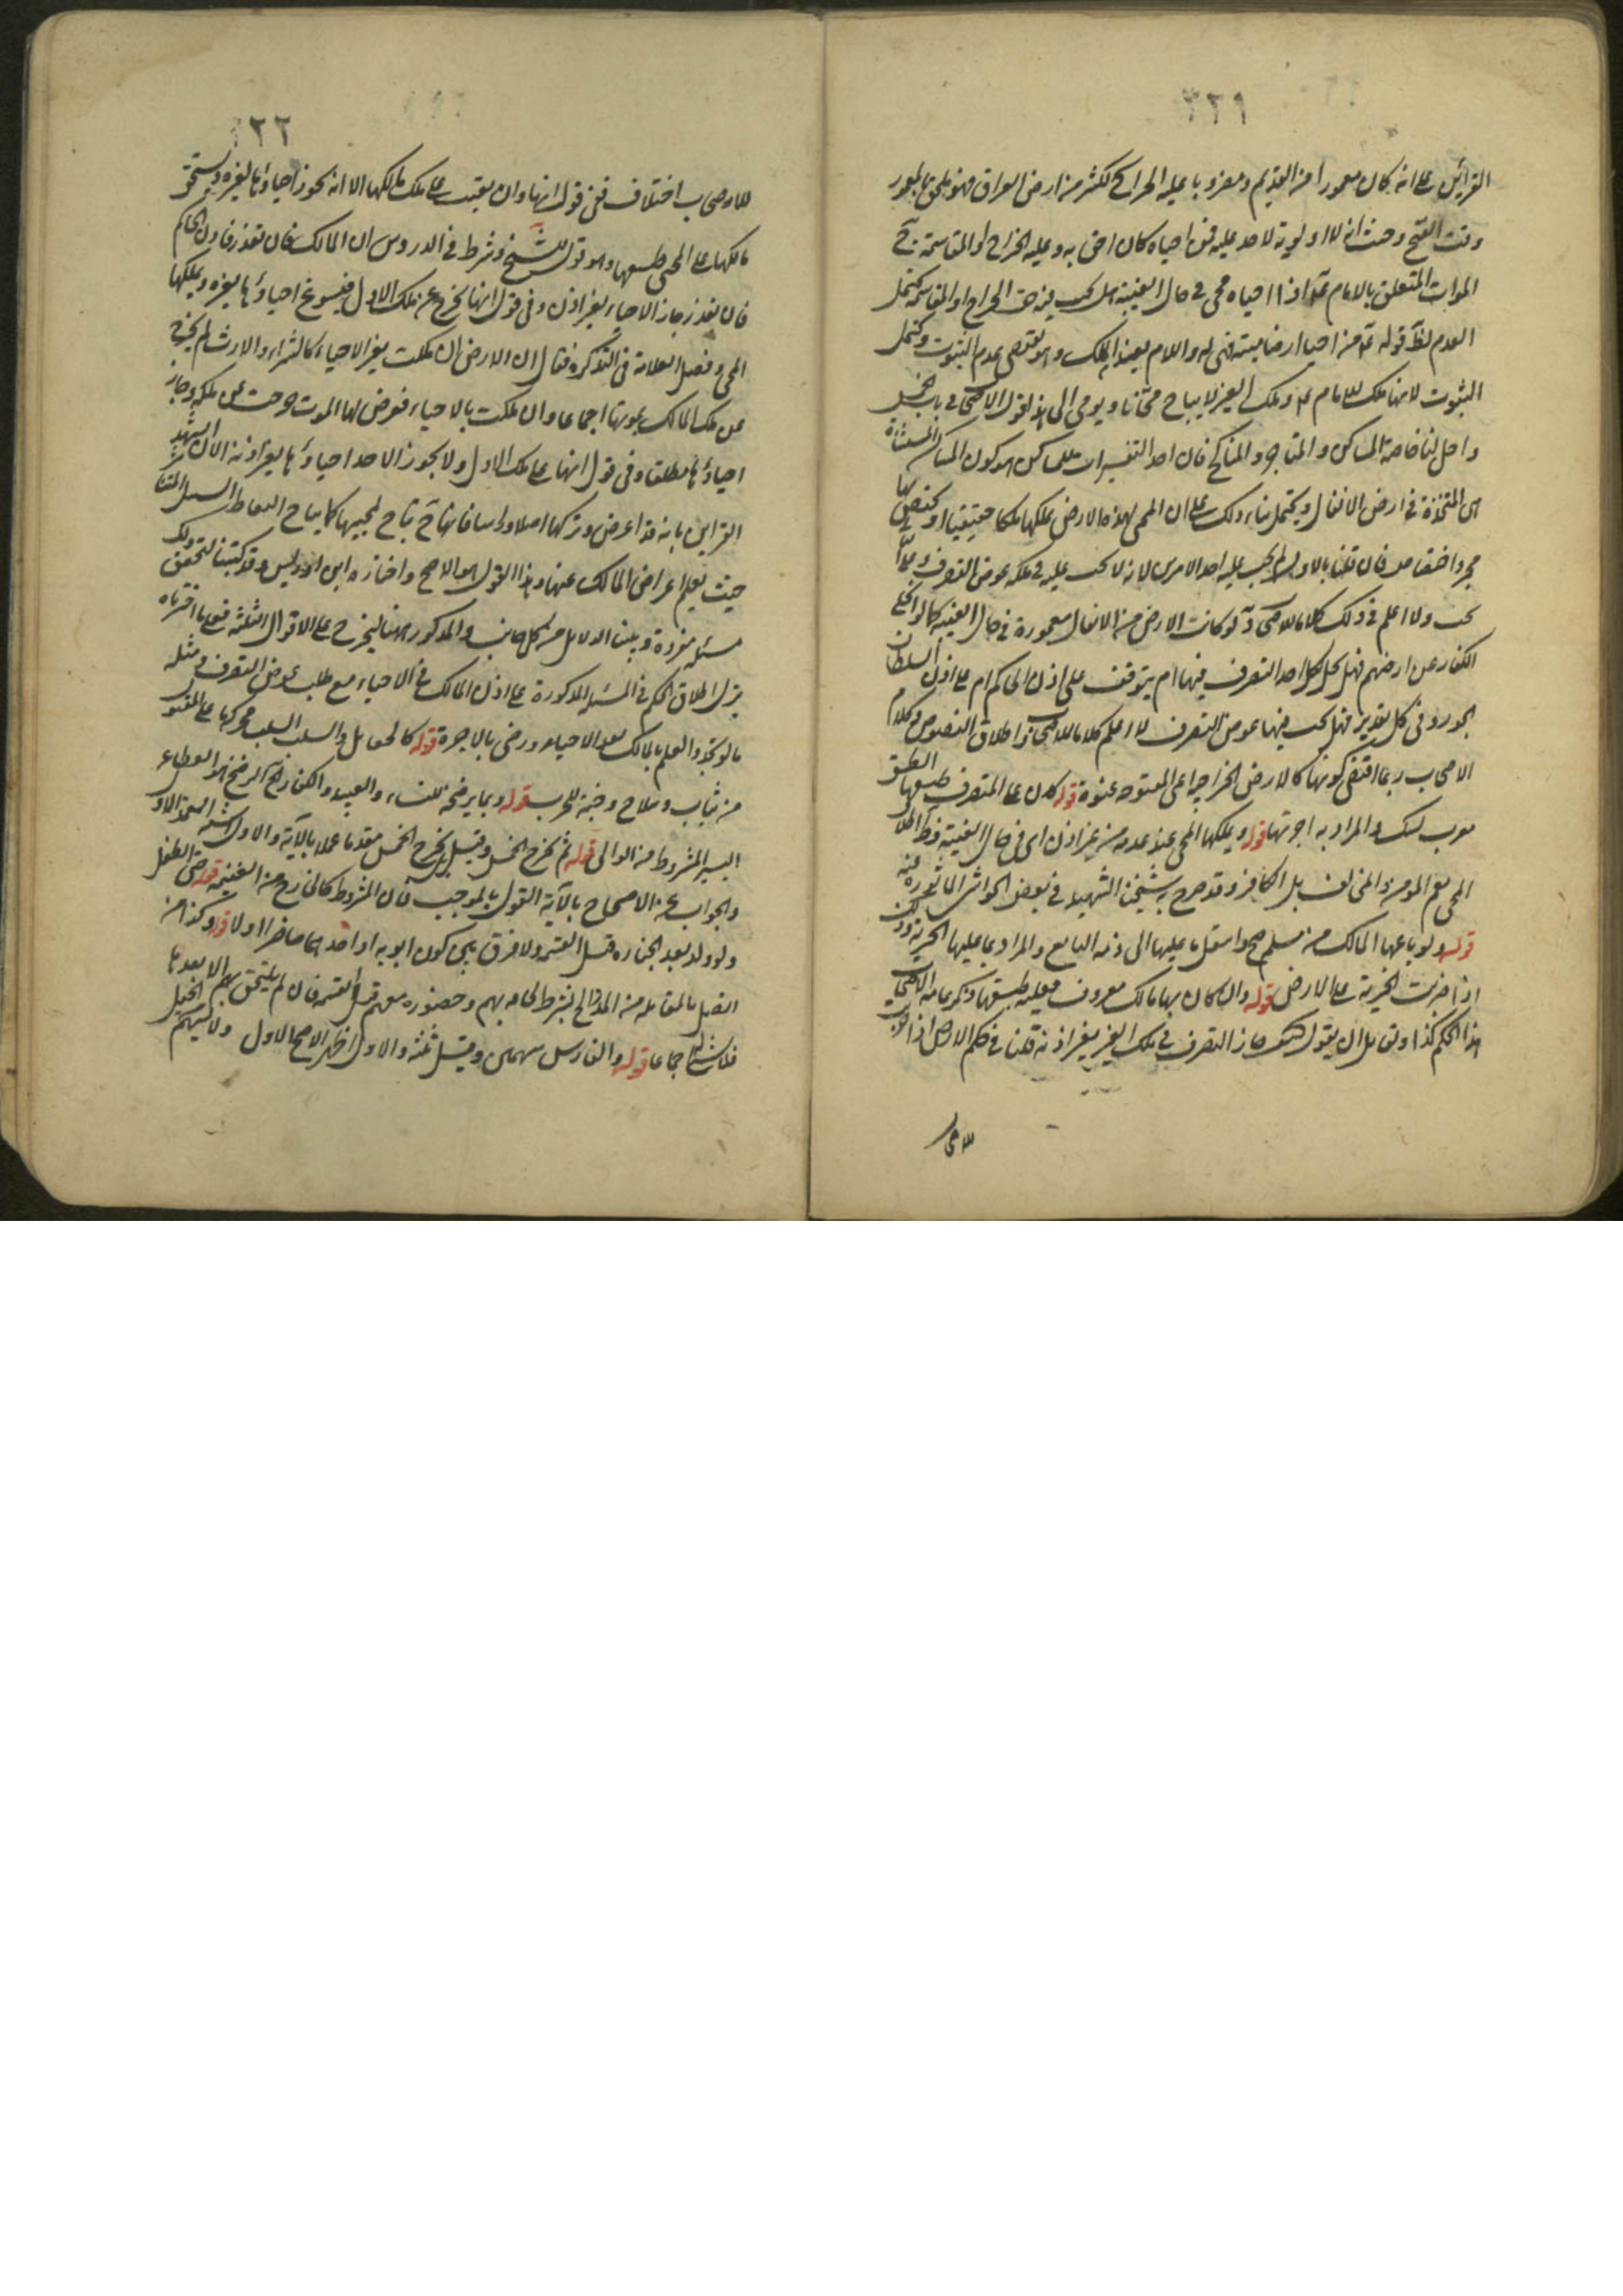 ٣٢١
القرائن على انه كان معمورا من القديم ومضروبا عليه الخراج ككثير من ارض العراق فهو ملحق بالمعمور
وقت الفتح وحيث انه لا اولوية لاحد عليه فمن احياه كان احق به وعليه الخراج او المقاسمة ج
الموات المتعلق بالامام ع اذا احياه محيي في حال الغيبة هل يجب فيه حق الخراج او المقاسمة يحتمل
العدم لظ قوله ع من احيا ارضا ميتة فهي له واللام يفيد الملك وهو يقتضي عدم الثبوت ويحتمل
الثبوت لانها ملك للامام ع وملك الغير لا يباح مجانا ويومي الى هذا قول الاصحاب في باب الخمس
واحل لنا خاصة المساكن والمتاجر والمناكح فان احد التفسيرات للمساكن هو كون المساكن المستثناة
هي المتخذة في ارض الانفال ويحتمل بناء ذلك على ان المحيي لهذه الارض يملكها ملكا حقيقيا او يختص بها
مجرد اختصاص فان قلنا بالاول لم يجب عليه احد الامرين لانه لا يجب عليه في ملكه عوض التصرف
ولا اعلم في ذلك كلاما للاصحاب د لو كانت الارض من الانفال معمورة في حال الغيبة كما لو انجلى
الكفار عن ارضهم فهل يحل لكل احد التصرف فيها ام يتوقف على اذن الحاكم ام على اذن السلطان
الجور وفي كل تقدير فهل يجب فيها عوض التصرف لا اعلم كلاما للاصحاب واطلاق النصوص وكلام
الاصحاب ربما اقتضى كونها كالارض الخراجية اعني المفتوحة عنوة قوله كان على المتصرف طسقها الطسق
معرب والمراد به اجرتها قوله ويملكها المحيي عند عدمه من غير اذن اي في حال الغيبة
المحيي المؤمن والمخالف بل الكافر وقد صرح به شيخنا الشهيد في بعض الحواشي الماثورة عنه
قوله ولو باعها المالك من مسلم صح وانتقل ما عليها الى ذمة البايع والمراد بما عليها الجزية
اذا ضربت الجزية على الارض قوله وان كان بها مالك معروف فعليه طسقها ذكر جماعة الاصحاب
هذا الحكم كذا ولقائل ان يقول كيف جاز التصرف في ملك الغير بغير اذنه قلنا في حكم الارض اذا
للاصحاب
٣٢٢
للاصحاب اختلاف ففي قول انها وان بقيت على ملك مالكها الا انه يجوز احياؤها لغيره ويستحق
مالكها على المحيي طسقها وهو قول للشيخ وشرط في الدروس اذن المالك فان تعذر فاذن الحاكم
فان تعذر جاز الاحياء بغير اذن وفي قول انها يخرج عن ملك الاول فيسوغ احياؤها لغيره ويملكها
المحيي وفصل العلامة في التذكرة فقال ان الارض ان ملكت بغير الاحياء كالشراء والارث لم يخرج
عن ملك المالك بموتها اجماعا وان ملكت بالاحياء فعرض لها الموت خرجت عن ملكه وجاز
احياؤها مطلقا وفي قول انها على ملك الاول ولا يجوز لاحد احياؤها بغير اذنه الا ان يشهد
القراين بانه قد اعرض وتركها اصلا وراسا فانها ح تباح لمحييها كما يباح التقاط السنبل
حيث يعلم اعراض المالك عنها وهذا القول هو الاصح واختاره ابن ادريس وقد كتبنا لتحقيق ذلك
مسئلة مفردة وبينا الدلايل من كل جانب والمذكور هنا ليخرج على الاقوال الثلثة فعلى ما اخترناه
ينزل اطلاق الحكم في المسئلة المذكورة على اذن المالك في الاحياء مع طلب عوض التصرف ومثله
ما لو تجدد العلم بالمالك بعد الاحياء ورضي بالاجرة قوله كالجعايل والسلب السلب
من ثياب وسلاح وجنة للحرب قوله وبما يرضخه للنساء والعبيد والكفار الرضخ هو العطاء
اليسير المشروط من الوالي قوله ثم يخرج الخمس وقيل بل يخرج الخمس مقدما عملا بالاية والاول اشبه
والجواب عن الاحتجاج بالاية القول بالموجب فان المشروط كالخارج من الغنيمة قوله حتى الطفل
ولو ولد بعد الحيازة قبل القسمة ولا فرق بين كون ابويه او احدهما حاضرا او لا قوله وكذا من
اتصل بالمقاتلة من المدد الخ بشرط لحاقه بهم وحضوره معهم قبل القسمة فان لم يلتحق بهم الا بعدها
فلا شي اجماعا قوله والفارس سهمين وقيل ثلثة والاول اظهر الاصح الاول ولا يسهم الخيل